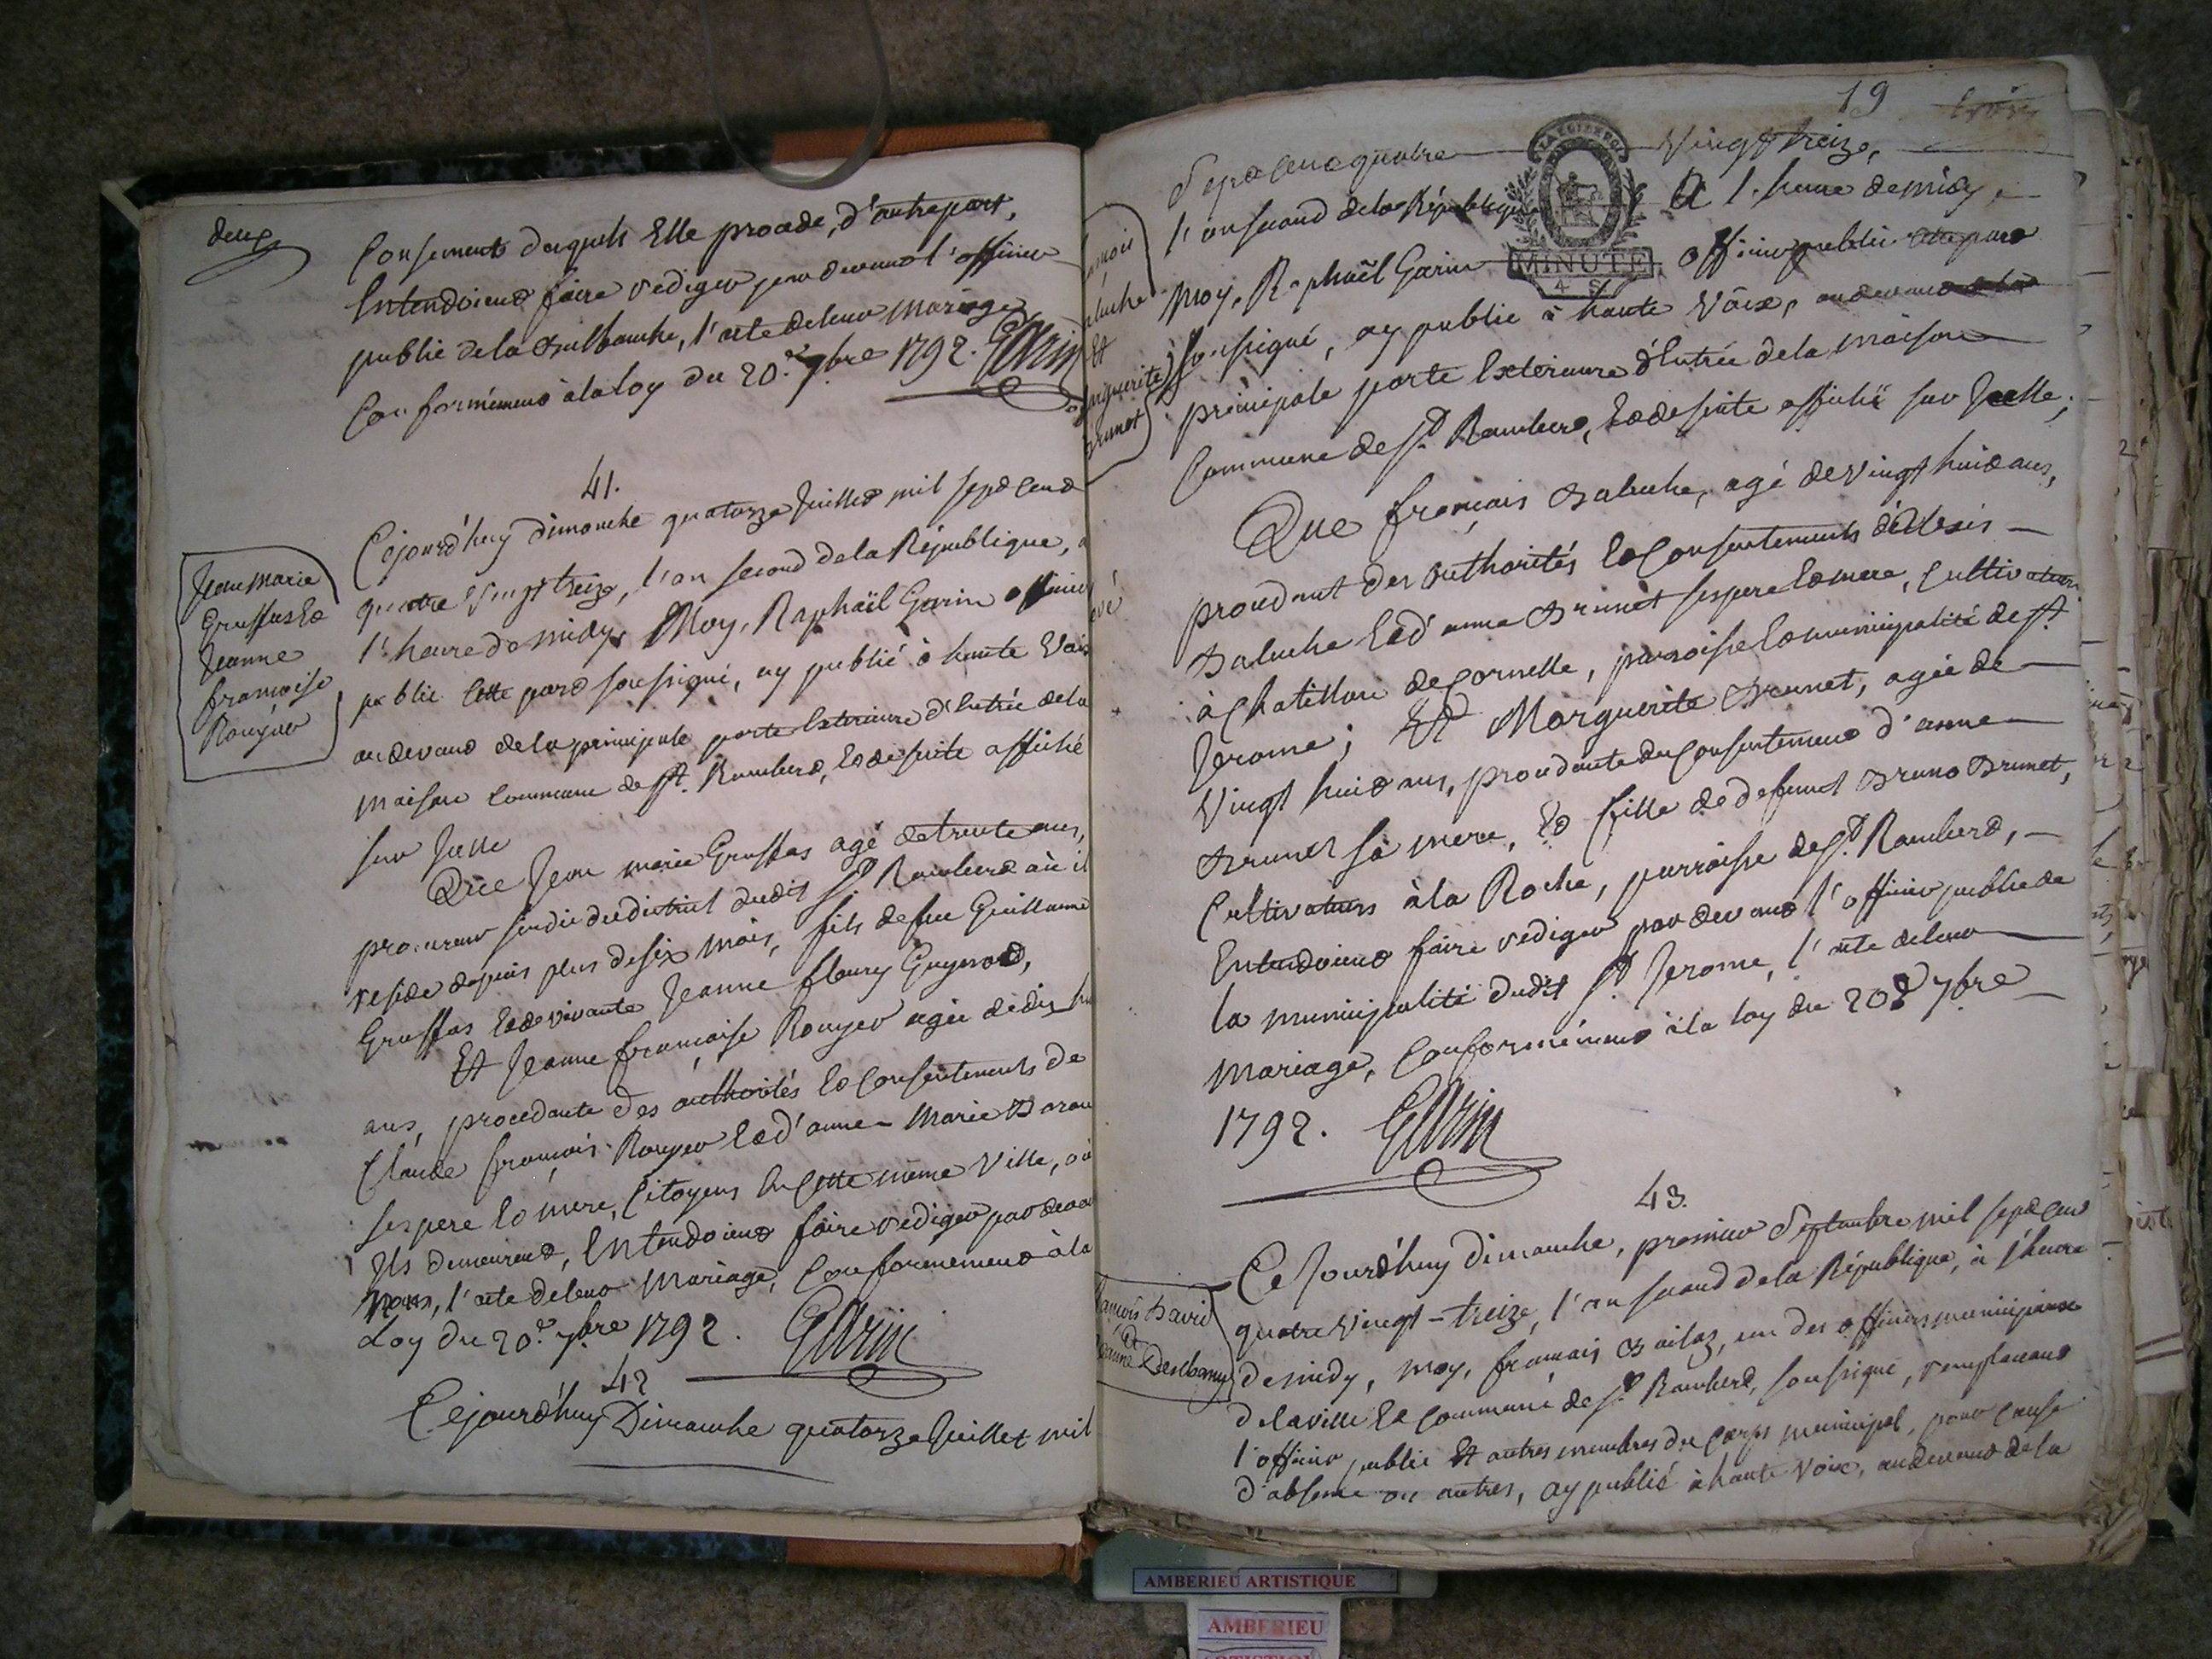 deux
Consements desquels Elle procede, d'autrepart,
Entendoient faire rediger pardevant l'officier
public de la Balbanche, l'acte de leur mariage
Conformement à la loy du 20.e 7bre 1792. Garin
41.
Jean marie
Grussas Et
Jeanne
françoise
Rouger
Cejourd'huy dimanche quatorze Juillet mil sept cent
quatre vingt treize, l'an second de la République, a
l'heure de midy, Moy, Raphaël Garin officier
public cette part soussigné, ay publié à haute Voix
audevant de la principale porte Exterieure d'Entrée de la
maison commune de St. Rambert, Et de suite affiché
sur Icelle
Que Jean marie Grussas agé de trente ans,
procureur sindic du district dudit St. Rambert où il
reside depuis plus de six mois, fils de feu Guillaume
Grussas Et de vivante Jeanne fleury
Et Jeanne françoise Rouyer agée de dix hu
ans, procedante des authorités Et Consentements de
Claude françois Rouyer Et d'anne-Marie
ses pere Et mere, Citoyens En Cette même Ville, où
Ils demeurent, Entendoient faire rediger pardevant
Nous, l'acte de leur Mariage, Conformement à la
Loy du 20.e 7bre 1792. Garin
42
Cejourd'huy Dimanche quatorze Juillet mil
19
Sept Cent quatre Vingt treize,
l'an second de la République A l'heure de midy,
MINUTE
4 S.
Moy, Raphaël Garin officier public
soussigné, ay publié à haute Voix, audevant de la
principale porte Exterieure d'Entrée de la maison
Commune de St. Rambert, Et de suite affiché sur Icelle;
Et
Marguerite
Brunet
Que françois Baluche, agé de Vingt huit ans,
procedant des authorités Et Consentements d'Alexis
Baluche Et d'anne Brunet ses pere Et mere, Cultivateurs
à Chatillon de Cornelle, parroisse Et municipalité de St.
Jerome; Et Marguerite Brunet, agée de
Vingt huit ans, procedante du Consentement d'anne
Brunet sa mere, Et fille de defunct Bruno Brunet,
Cultivateurs à la Roche, parroisse de St. Rambert,
Entendoient faire rediger pardevant l'officier public de
la municipalité dudit St. Jerome, l'acte de leur
Mariage, Conformement à la loy du 20.e 7bre
1792. Garin
43.
françois David
Et
Jeanne
Ce Jourd'huy Dimanche, premier Septembre mil sept cent
quatre Vingt-treize, l'an second de la République, à l'heure
de midy, moy, françois Bailaz, un des officiers municipaux
de la ville Et Commune de St. Rambert, soussigné, remplacant
l'officier public Et autres membres du Corps municipal, pour Cause
d'absence ou autres, ay publié à haute Voix, audevant de la
AMBERIEU ARTISTIQUE
AMBERIEU
ARTISTIQUE